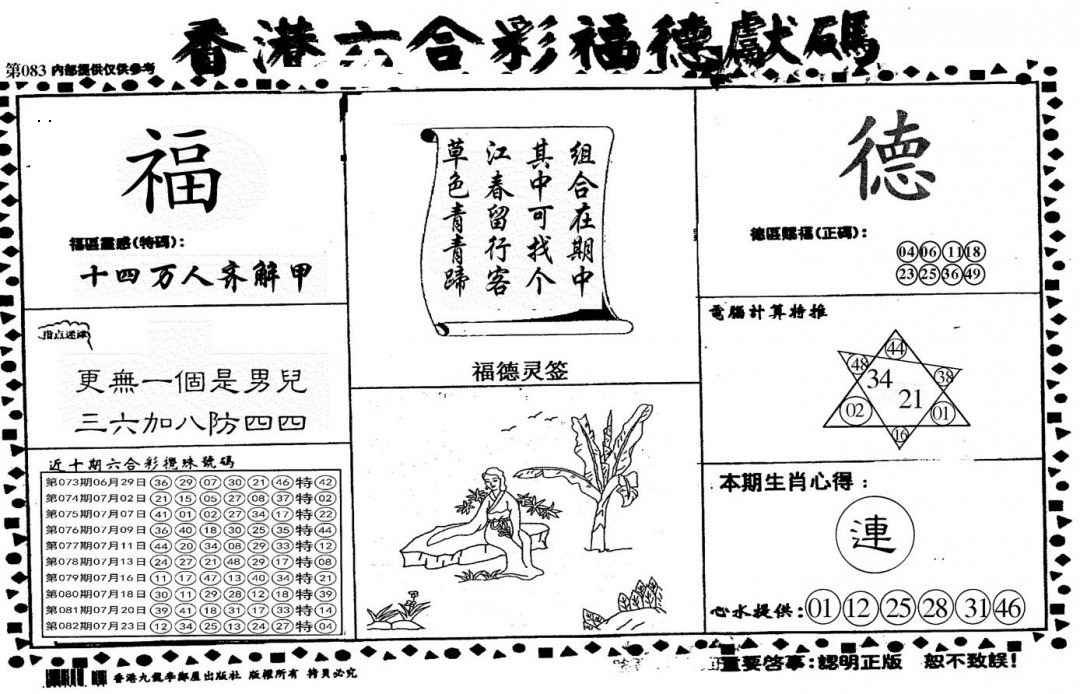 香港六合彩福德獻碼
第083 内部提供仅供参考
福
福區靈感(特碼):
十四万人齐解甲
指点迷津
更無一個是男兒
三六加八防四四
近十期六合彩攪珠號碼
第073期06月29日 36 29 07 30 21 46 特 42
第074期07月02日 21 15 05 27 08 37 特 02
第075期07月07日 41 01 02 27 34 17 特 22
第076期07月09日 36 40 18 30 25 35 特 44
第077期07月11日 44 20 34 08 29 33 特 12
第078期07月13日 24 27 21 48 29 17 特 08
第079期07月16日 11 17 47 13 40 34 特 21
第080期07月18日 30 11 29 28 12 18 特 39
第081期07月20日 39 41 18 31 17 33 特 14
第082期07月23日 12 34 25 13 24 27 特 04
组合在期中
其中可找个
江春留行客
草色青青蹄
福德灵签
德
德區賜福(正碼):
04 06 11 18
23 25 36 49
電腦計算特推
44
48
38
34
21
02
01
16
本期生肖心得:
連
心水提供: 01 12 25 28 31 46
香港九龍李鄭屋出版社 版權所有 拷貝必究
重要啓事:認明正版 恕不致誤!